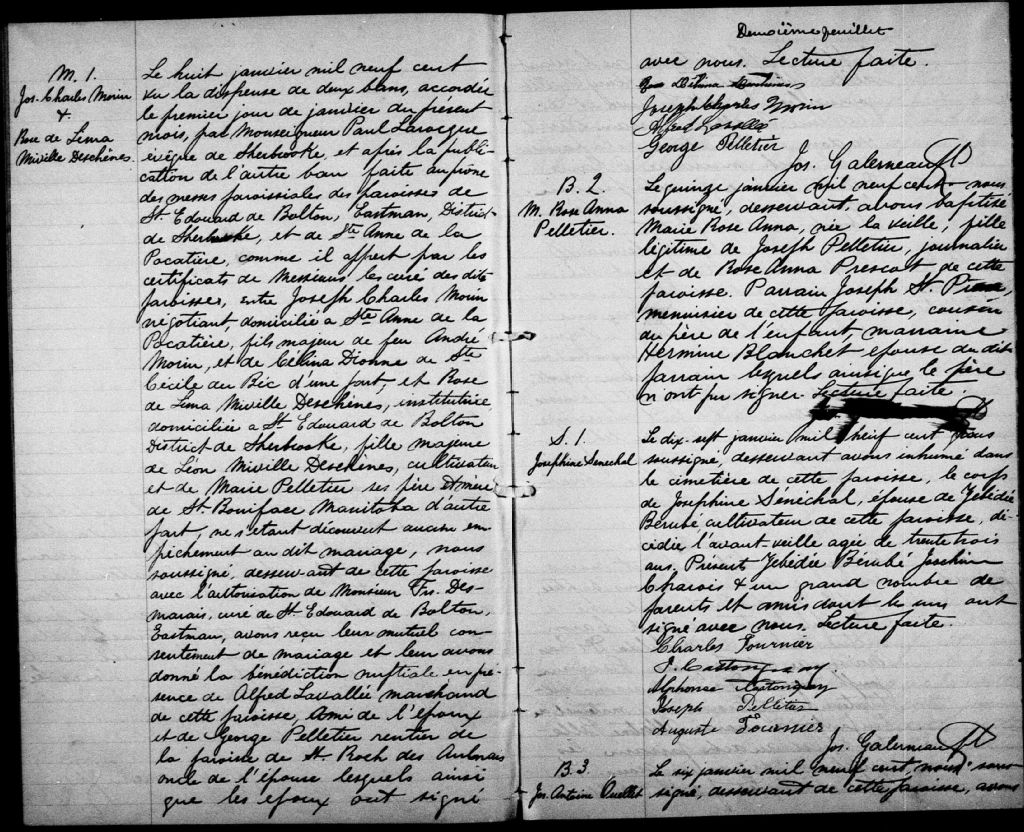 M. 1.
Jos. Charles Morin
&
Rose de Lima
Miville Deschênes.
Le huit janvier mil neuf cent
vu la dispense de deux bans, accordée
le premier jour de janvier du présent
mois, par Monseigneur Paul Larocque
évêque de Sherbrooke, et après la publi-
cation de l'autre ban faite au prône
des messes paroissiales des paroisses de
St. Edouard de Bolton, Eastman, District
de Sherbrooke, et de Ste Anne de la
Pocatière, comme il appert par les
certificats de Messieurs les curé des dites
paroisses, entre Joseph Charles Morin
négotiant, domicilié a Ste Anne de la
Pocatière, fils majeur de feu André
Morin, et de Célina Dionne de Ste
Cécile du Bic d'une part, et Rose
de Lima Miville Deschênes, institutrice,
domiciliée a St. Edouard de Bolton
District de Sherbrooke, fille majeure
de Léon Miville Deschênes, cultivateur
et de Marie Pelletier ses père et mère
de St. Boniface Manitoba d'autre
part, ne s'étant découvert aucun em-
pêchement au dit mariage, nous
soussigné, desservant de cette paroisse
avec l'autorisation de Monsieur Frs. Des-
marais, curé de St. Edouard de Bolton,
Eastman, avons reçu leur mutuel con-
sentement de mariage et leur avons
donné la bénédiction nuptiale en pré-
sence de Alfred Lavallée marchand
de cette paroisse, ami de l'époux
et de George Pelletier rentier de
la paroisse de St. Roch des Aulnais
oncle de l'épouse lesquels ainsi
que les époux ont signé
Deuxième feuillet
avec nous. Lecture faite.
Joseph Charles Morin
Alfred Lavallée
George Pelletier
Jos. Galerneau Ptr
B. 2.
M. Rose Anna
Pelletier.
Le quinze janvier mil neuf cent nous
soussigné, desservant, avons baptisé
Marie Rose Anna, née la veille, fille
légitime de Joseph Pelletier, journalier
et de Rose Anna Prescot de cette
paroisse. Parrain Joseph St Pierre,
menuisier de cette paroisse, cousin
du père de l'enfant marraine
Hermine Blanchet épouse du dit
parrain lesquels ainsi que le père
n'ont pu signer. Lecture faite.
S. 1.
Josephine Senechal
Le dix-sept janvier mil neuf cent nous
soussigné, desservant avons inhumé dans
le cimetière de cette paroisse, le corps
de Josephine Sénéchal, épouse de Zébédée
Bérubé cultivateur de cette paroisse, dé-
cédée l'avant-veille agée de trente trois
ans. Présent Zébédée Bérubé Joachim
& un grand nombre de
parents et amis dont les uns ont
signé avec nous. Lecture faite.
Charles Fournier
J. Castonguay
Alphonse Castonguay
Joseph Pelletier
Auguste Fournier
Jos. Galerneau Ptr
B. 3.
Jos. Antoine Ouellet
Le six janvier mil neuf cent, nous sous-
signé, desservant de cette paroisse, avons